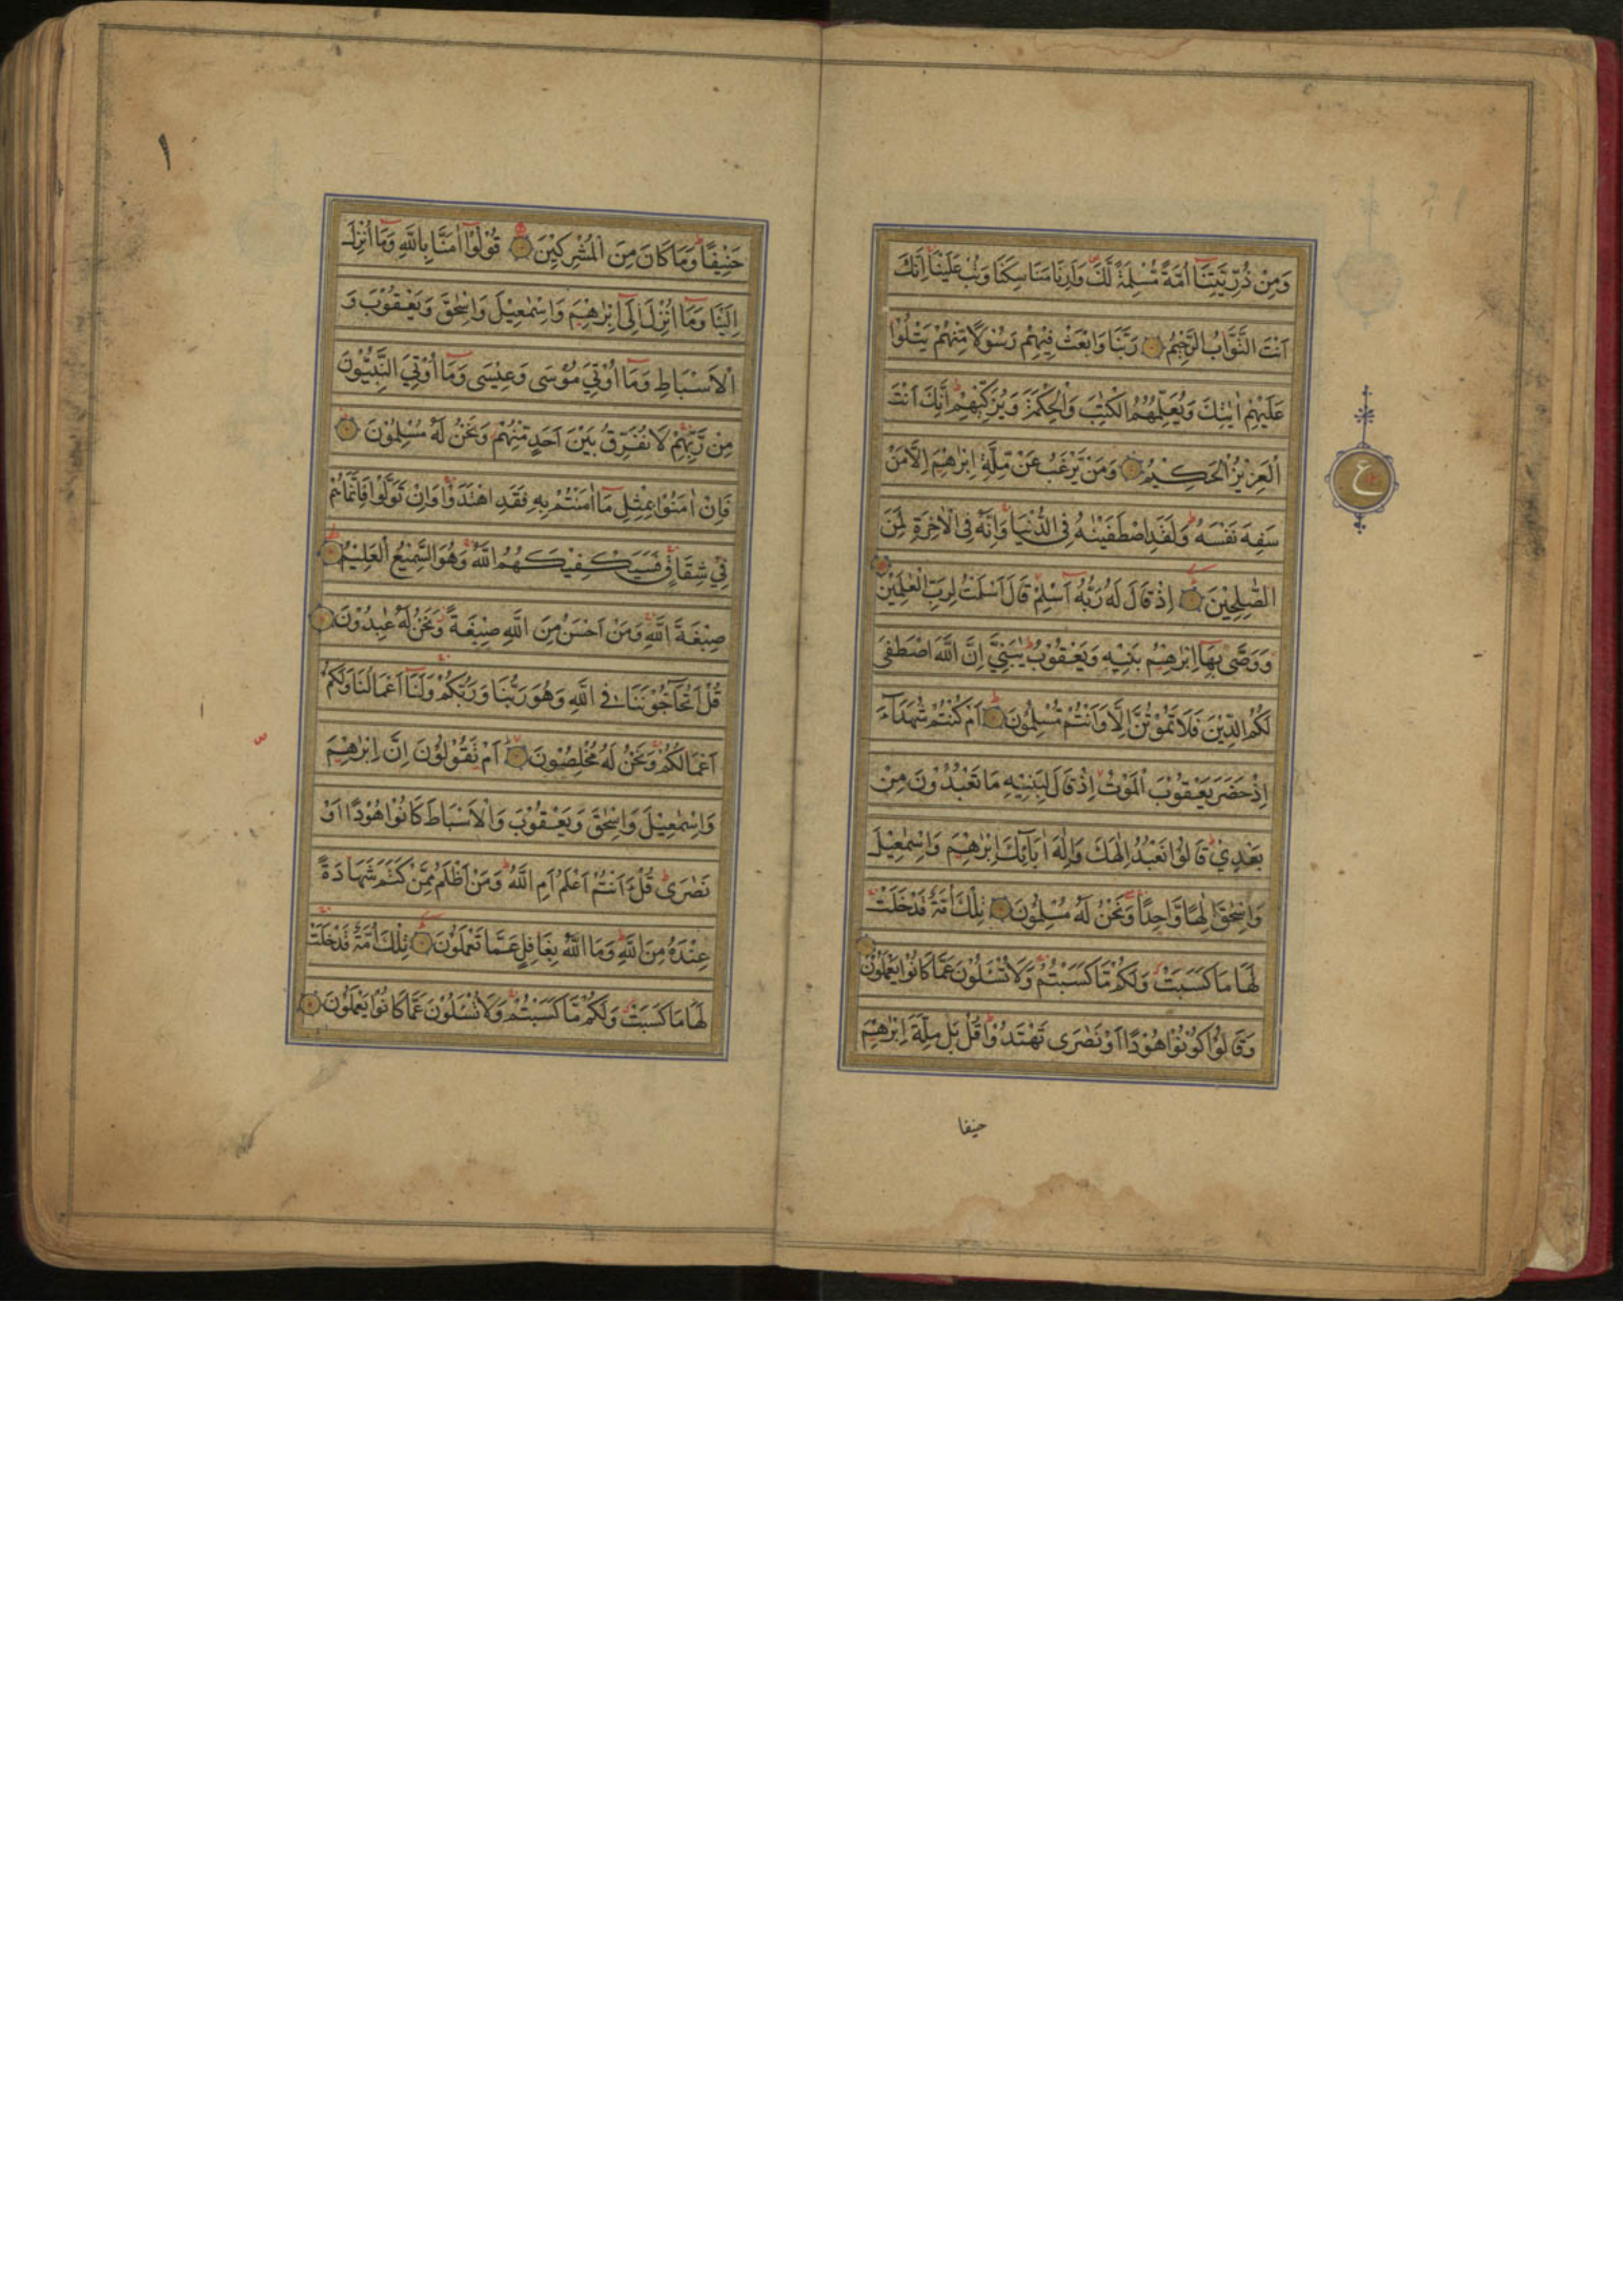 وَمِنْ ذُرِّيَّتِنَا اُمَّةً مُّسْلِمَةً لَّكَ وَاَرِنَا مَنَاسِكَنَا وَتُبْ عَلَيْنَا اِنَّكَ
اَنْتَ التَّوَّابُ الرَّحِيْمُ رَبَّنَا وَابْعَثْ فِيْهِمْ رَسُوْلًا مِّنْهُمْ يَتْلُوْا
عَلَيْهِمْ اٰيٰتِكَ وَيُعَلِّمُهُمُ الْكِتٰبَ وَالْحِكْمَةَ وَيُزَكِّيْهِمْ اِنَّكَ اَنْتَ
الْعَزِيْزُ الْحَكِيْمُ وَمَنْ يَّرْغَبُ عَنْ مِّلَّةِ اِبْرٰهِيْمَ اِلَّا مَنْ
سَفِهَ نَفْسَهُ وَلَقَدِ اصْطَفَيْنٰهُ فِى الدُّنْيَا وَاِنَّهٗ فِى الْاٰخِرَةِ لَمِنَ
الصّٰلِحِيْنَ اِذْ قَالَ لَهٗ رَبُّهٗ اَسْلِمْ قَالَ اَسْلَمْتُ لِرَبِّ الْعٰلَمِيْنَ
وَوَصّٰى بِهَا اِبْرٰهِيْمُ بَنِيْهِ وَيَعْقُوْبُ يٰبَنِيَّ اِنَّ اللّٰهَ اصْطَفٰى
لَكُمُ الدِّيْنَ فَلَا تَمُوْتُنَّ اِلَّا وَاَنْتُمْ مُّسْلِمُوْنَ اَمْ كُنْتُمْ شُهَدَآءَ
اِذْ حَضَرَ يَعْقُوْبَ الْمَوْتُ اِذْ قَالَ لِبَنِيْهِ مَا تَعْبُدُوْنَ مِنْ
بَعْدِيْ قَالُوْا نَعْبُدُ اِلٰهَكَ وَاِلٰهَ اٰبَآئِكَ اِبْرٰهِيْمَ وَاِسْمٰعِيْلَ
وَاِسْحٰقَ اِلٰهًا وَّاحِدًا وَنَحْنُ لَهٗ مُسْلِمُوْنَ تِلْكَ اُمَّةٌ قَدْ خَلَتْ
لَهَا مَا كَسَبَتْ وَلَكُمْ مَّا كَسَبْتُمْ وَلَا تُسْئَلُوْنَ عَمَّا كَانُوْا يَعْمَلُوْنَ
وَقَالُوْا كُوْنُوْا هُوْدًا اَوْ نَصٰرٰى تَهْتَدُوْا قُلْ بَلْ مِلَّةَ اِبْرٰهِيْمَ
حنيفا
ع
١
حَنِيْفًا وَمَا كَانَ مِنَ الْمُشْرِكِيْنَ قُوْلُوْا اٰمَنَّا بِاللّٰهِ وَمَا اُنْزِلَ
اِلَيْنَا وَمَا اُنْزِلَ اِلٰى اِبْرٰهِيْمَ وَاِسْمٰعِيْلَ وَاِسْحٰقَ وَيَعْقُوْبَ وَ
الْاَسْبَاطِ وَمَا اُوْتِيَ مُوْسٰى وَعِيْسٰى وَمَا اُوْتِيَ النَّبِيُّوْنَ
مِنْ رَّبِّهِمْ لَا نُفَرِّقُ بَيْنَ اَحَدٍ مِّنْهُمْ وَنَحْنُ لَهٗ مُسْلِمُوْنَ
فَاِنْ اٰمَنُوْا بِمِثْلِ مَا اٰمَنْتُمْ بِهٖ فَقَدِ اهْتَدَوْا وَاِنْ تَوَلَّوْا فَاِنَّمَا هُمْ
فِيْ شِقَاقٍ فَسَيَكْفِيْكَهُمُ اللّٰهُ وَهُوَ السَّمِيْعُ الْعَلِيْمُ
صِبْغَةَ اللّٰهِ وَمَنْ اَحْسَنُ مِنَ اللّٰهِ صِبْغَةً وَّنَحْنُ لَهٗ عٰبِدُوْنَ
قُلْ اَتُحَآجُّوْنَنَا فِى اللّٰهِ وَهُوَ رَبُّنَا وَرَبُّكُمْ وَلَنَا اَعْمَالُنَا وَلَكُمْ
اَعْمَالُكُمْ وَنَحْنُ لَهٗ مُخْلِصُوْنَ اَمْ تَقُوْلُوْنَ اِنَّ اِبْرٰهِيْمَ
وَاِسْمٰعِيْلَ وَاِسْحٰقَ وَيَعْقُوْبَ وَالْاَسْبَاطَ كَانُوْا هُوْدًا اَوْ
نَصٰرٰى قُلْ ءَاَنْتُمْ اَعْلَمُ اَمِ اللّٰهُ وَمَنْ اَظْلَمُ مِمَّنْ كَتَمَ شَهَادَةً
عِنْدَهٗ مِنَ اللّٰهِ وَمَا اللّٰهُ بِغَافِلٍ عَمَّا تَعْمَلُوْنَ تِلْكَ اُمَّةٌ قَدْ خَلَتْ
لَهَا مَا كَسَبَتْ وَلَكُمْ مَّا كَسَبْتُمْ وَلَا تُسْئَلُوْنَ عَمَّا كَانُوْا يَعْمَلُوْنَ